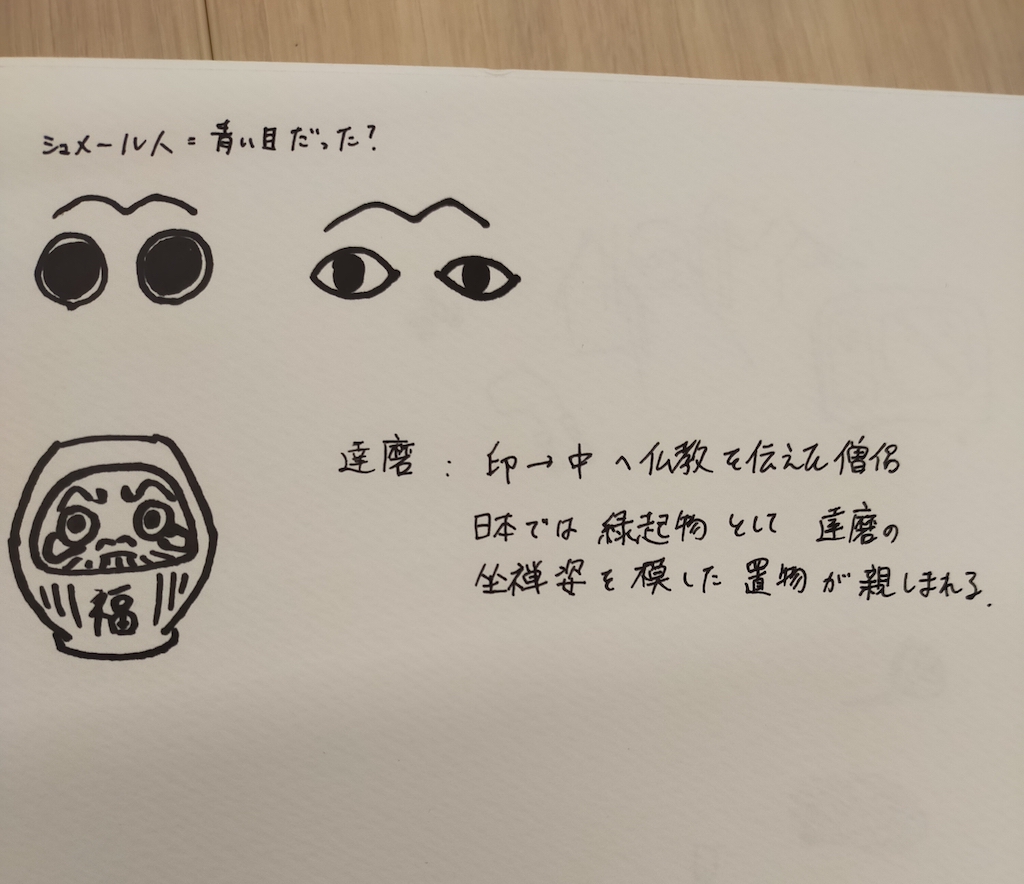 シュメール人=青い目だった?
達磨:印→中へ仏教を伝えた僧侶
日本では縁起物として達磨の
坐禅姿を模した置物が親しまれる.
福